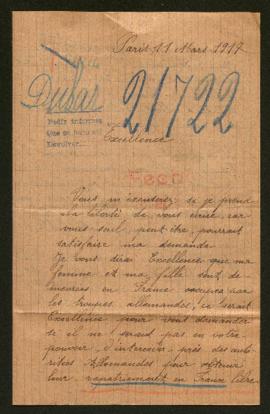 Paris 11 Mars 1917
Dubar
21722
Pedir informes
Que se haga así
Devolver.
Excellence
Vous m'excuserez si je prend
la liberté de vous écrire car
vous seul peut être, pourrait
satisfaire ma demande.
Je vous dirai Excellence que ma
femme et ma fille sont de-
meurées en France occupée par
les troupes allemandes, ce serait
Excellence pour vous demander
se il ne serait pas en votre
pouvoir d'intercéder près des auto-
rités Allemandes pour obtenir
leur rapatriement en France libre